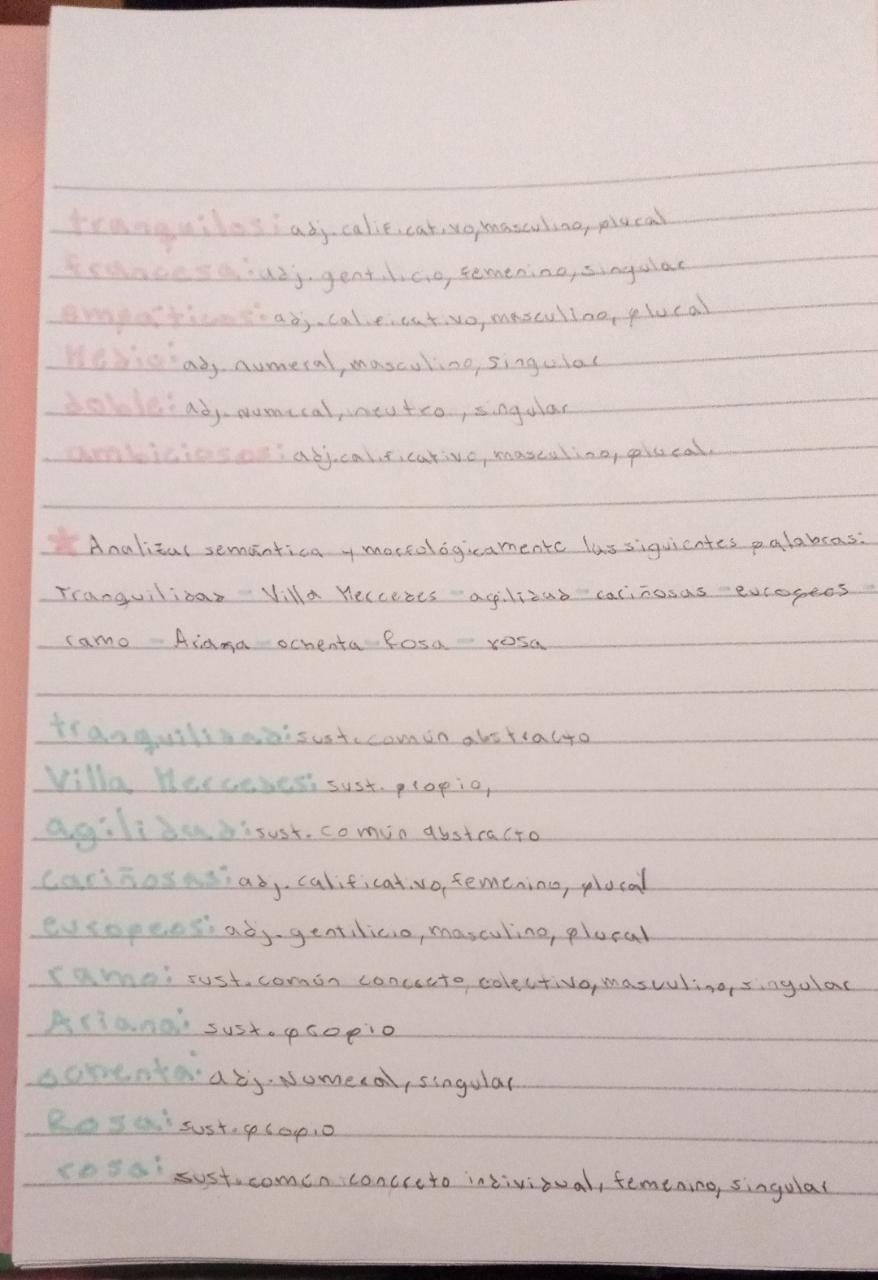 tranquilos: adj. calificativo, masculino, plural
francesa: adj. gentilicio, femenino, singular
empáticos: adj. calificativo, masculino, plural
Medio: adj. numeral, masculino, singular
doble: adj. numeral, neutro, singular
ambiciosos: adj. calificativo, masculino, plural.
Analizar semántica y morfológicamente las siguientes palabras:
Tranquilidad - Villa Mercedes - agilidad - cariñosas - europeos -
ramo - Ariana - ochenta - Rosa - rosa
tranquilidad: sust. común abstracto
Villa Mercedes: sust. propio,
agilidad: sust. común abstracto
cariñosas: adj. calificativo, femenino, plural
europeos: adj. gentilicio, masculino, plural
ramo: sust. común concreto, colectivo, masculino, singular
Ariana: sust. propio
ochenta: adj. Numeral, singular
Rosa: sust. propio
rosa: sust. común concreto individual, femenino, singular